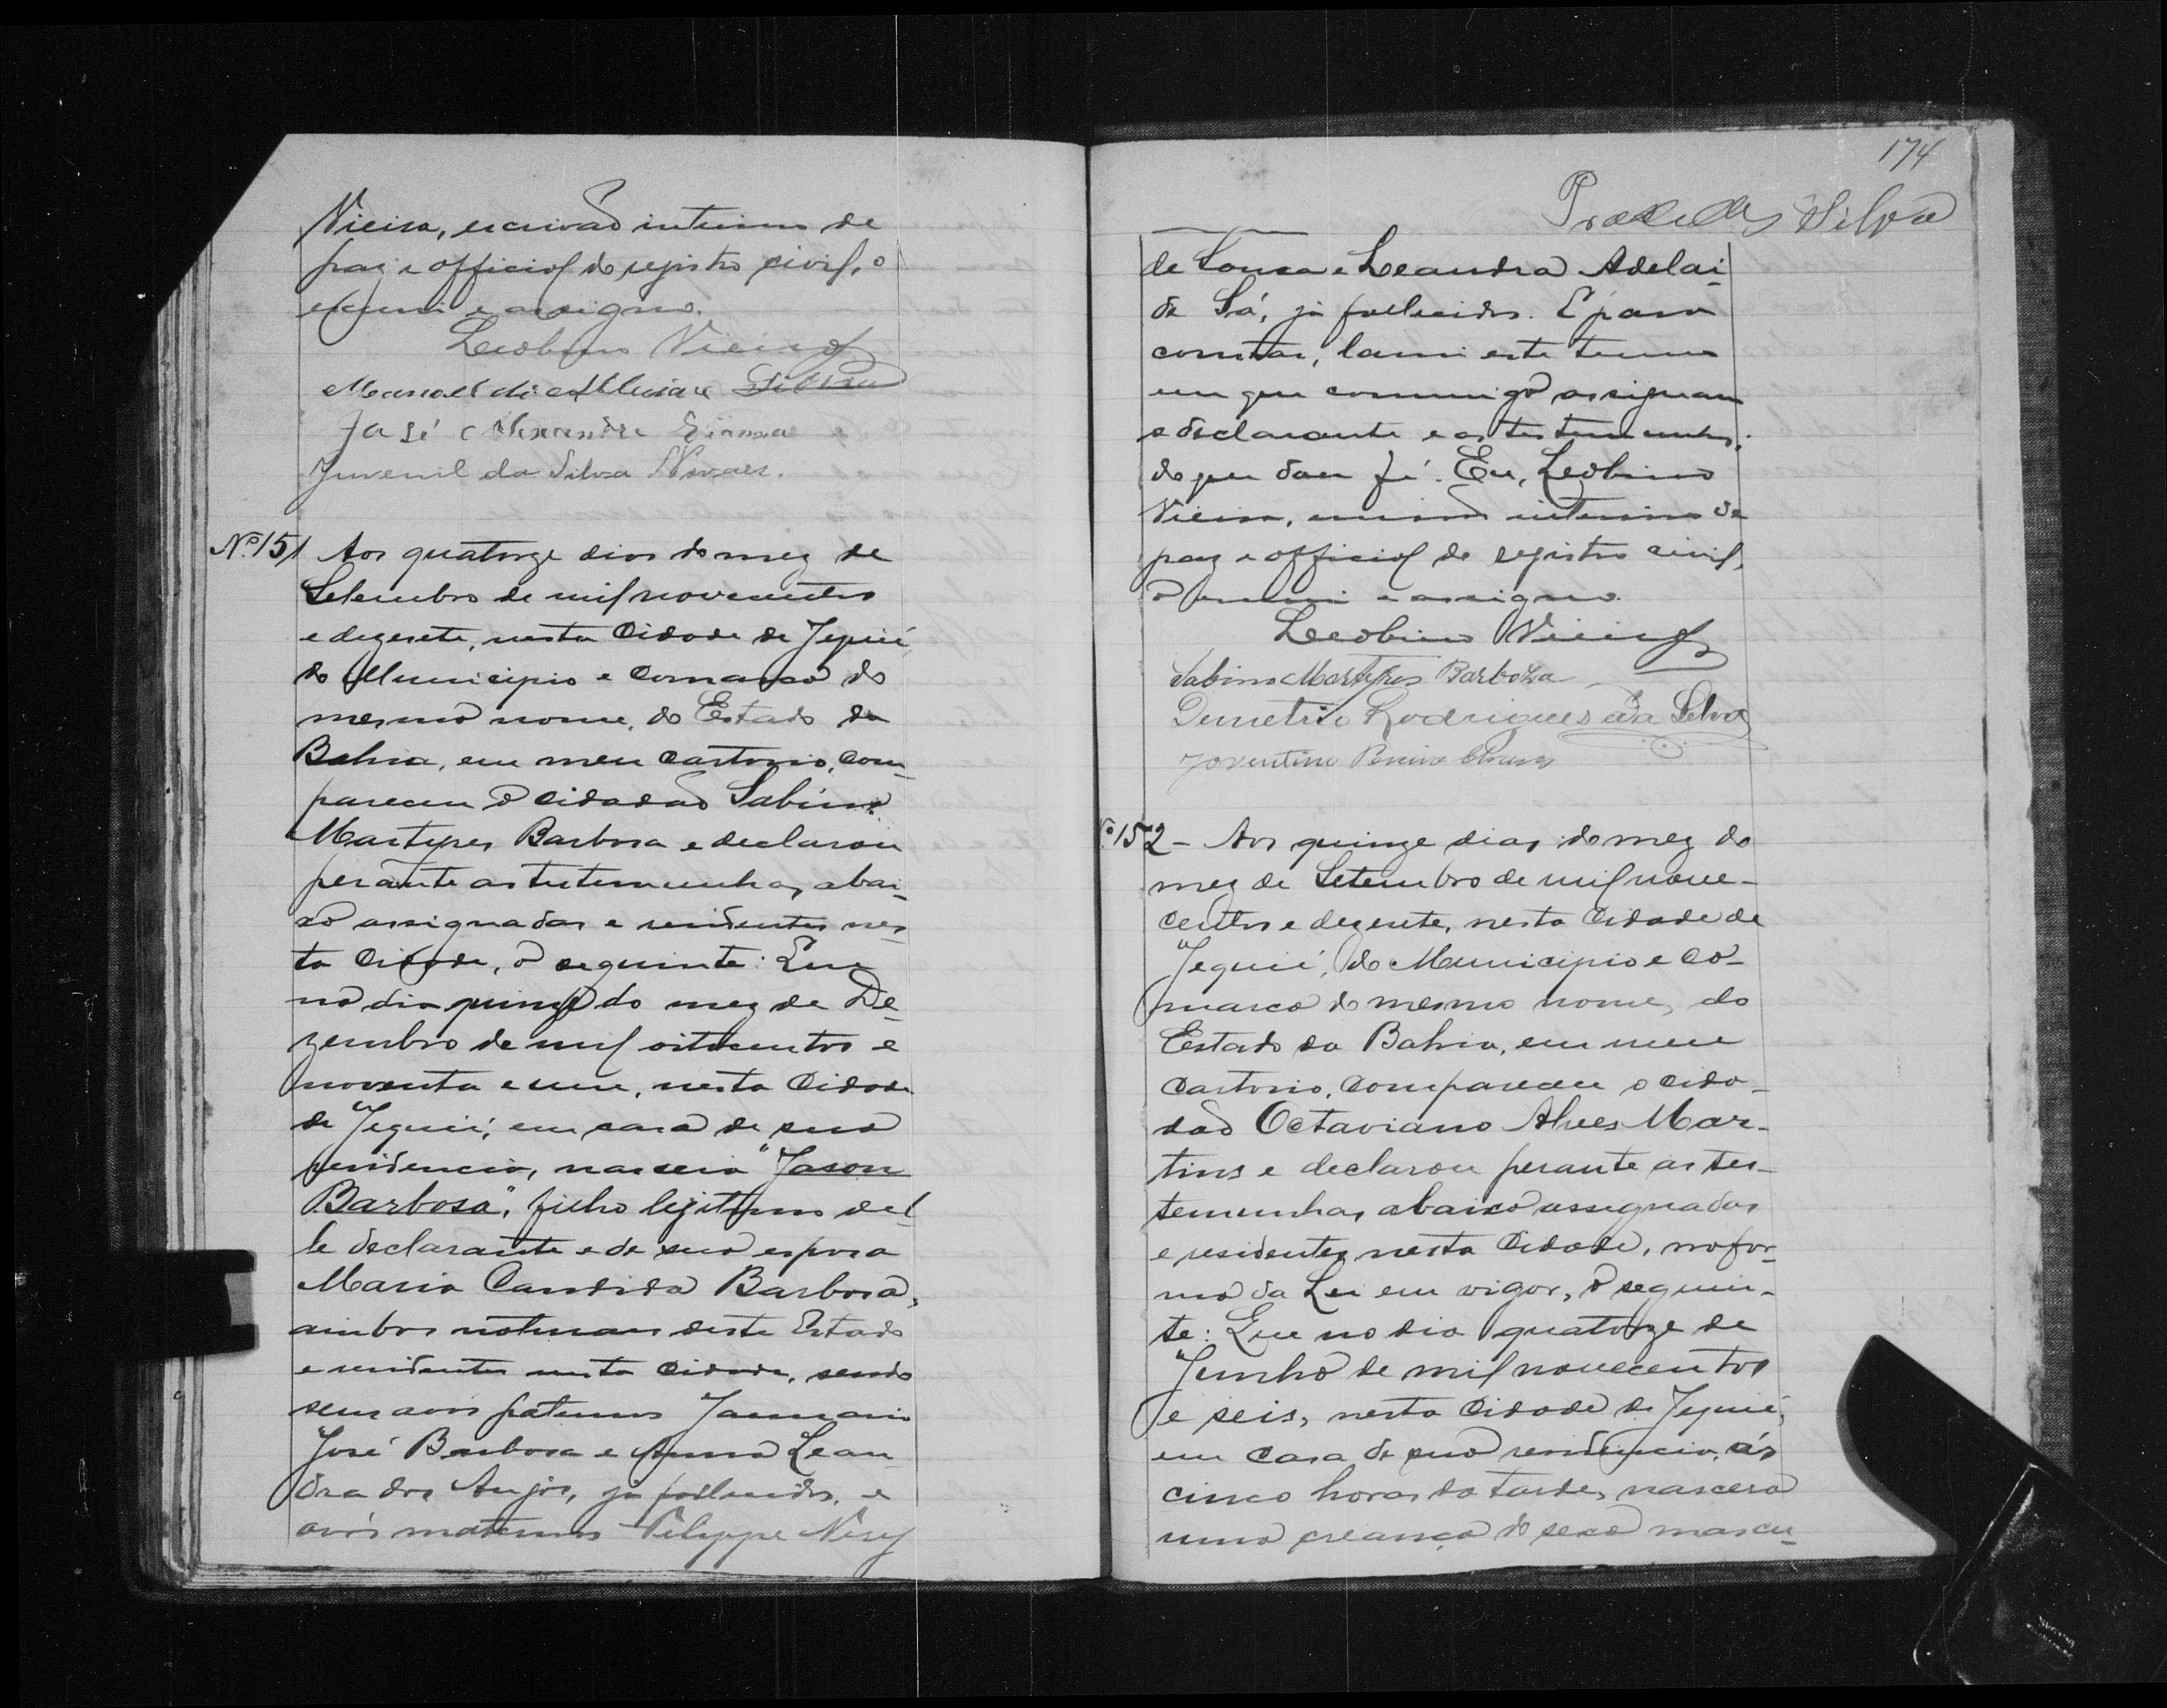 Vieira, escrivão interino de
paz e official do registro civil, o
escrevi e assigno.
Leobino Vieira
Manoel de Silva
José Alexandre
Juvenil da Silva Novaes.
Nº 151 Aos quatorze dias do mez de
Setembro de mil novecentos
e dezesete, nesta Cidade de Jequié
do Municipio e Comarca do
mesmo nome, do Estado da
Bahia, em meu Cartorio, com-
pareceu o cidadão Sabino
Martyres Barbosa e declarou
perante as testemunhas abai-
xo assignadas e residentes nes-
ta Cidade, o seguinte: Que
no dia quinze do mez de De-
zembro de mil oitocentos e
noventa e um, nesta Cidade
de Jequié, em casa de sua
residencia, nascera "Jason
Barbosa", filho legitimo del-
le declarante e de sua esposa
Maria Candida Barbosa,
ambos naturaes deste Estado
e residentes nesta Cidade, sendo
seus avós paternos Januario
José Barbosa e Anna Lean-
dra dos Anjos, já fallecidos, e
avós maternos Felippe Nery
174
Silva
de Sousa e Leandra Adelai-
de Sá, já fallecidos. E para
constar, lavrei este termo
em que commigo assignam
o declarante e as testemunhas,
do que dou fé. Eu, Leobino
Vieira, escrivão interino de
paz e official do registro civil,
o escrevi e assigno.
Leobino Vieira
Sabino Martyres Barboza
Demetrio Rodrigues da Silva
Joventino
Nº 152 - Aos quinze dias do mez do
mez de Setembro de mil nove-
centos e dezesete, nesta Cidade de
Jequié, do Municipio e Co-
marca do mesmo nome, do
Estado da Bahia, em meu
Cartorio, compareceu o cida-
dão Octaviano Alves Mar-
tins e declarou perante as tes-
temunhas abaixo assignadas
e residentes nesta Cidade, na for-
ma da Lei em vigor, o seguin-
te: Que no dia quatorze de
Junho de mil novecentos
e seis, nesta Cidade de Jequié,
em casa de sua residencia, ás
cinco horas da tarde, nascera
uma creança do sexo mascu-